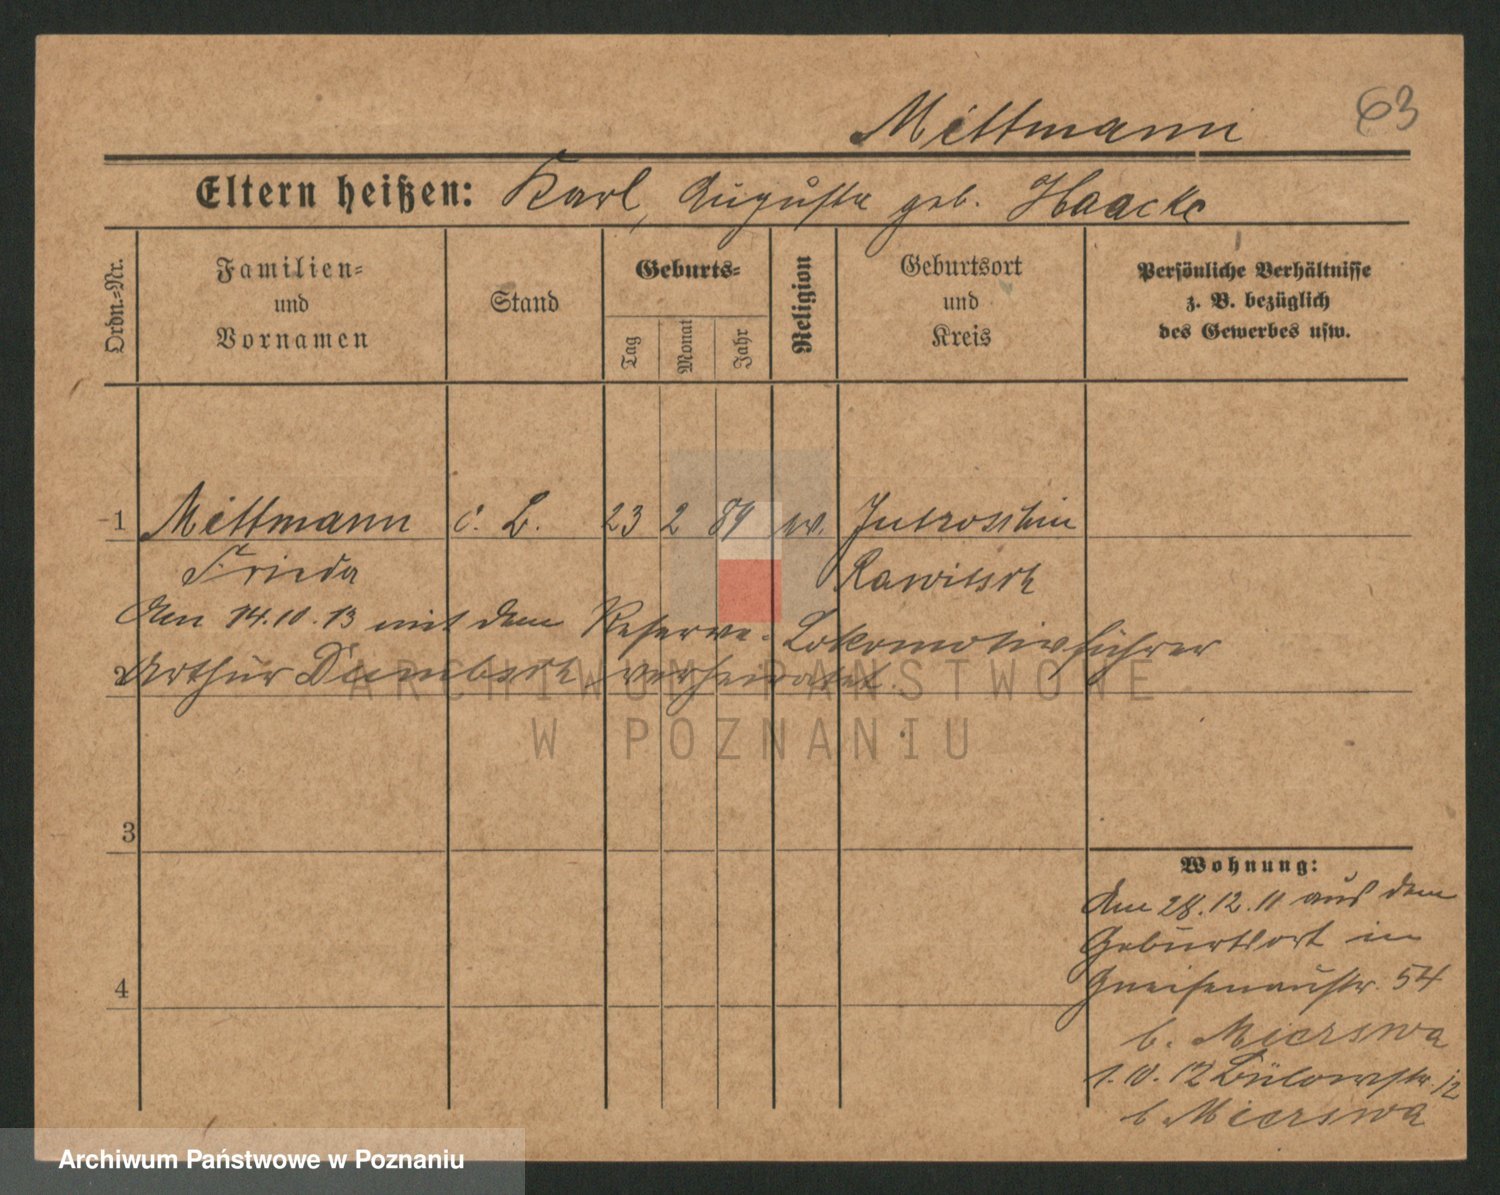 Mittmann
63
Eltern heißen: Karl, Auguste geb. Haacke
Ordn.=Nr.
Familien=
und
Vornamen
Stand
Geburts=
Tag
Monat
Jahr
Religion
Geburtsort
und
Kreis
Persönliche Verhältnisse
z. B. bezüglich
des Gewerbes usw.
1 Mittmann 23 2 89 ev. Jutroschin
Frieda Rawitsch
Am 14.10.13 mit dem Reserve-Lokomotivführer
2 Arthur verheiratet.
3
4
Wohnung:
Am 28.12.11 aus dem
Geburtsort in
Gneisenaustr. 54
b. Mierswa
1.10.12 Bülowstr. 12
b Mierswa
ARCHIWUM PAŃSTWOWE
W POZNANIU
Archiwum Państwowe w Poznaniu